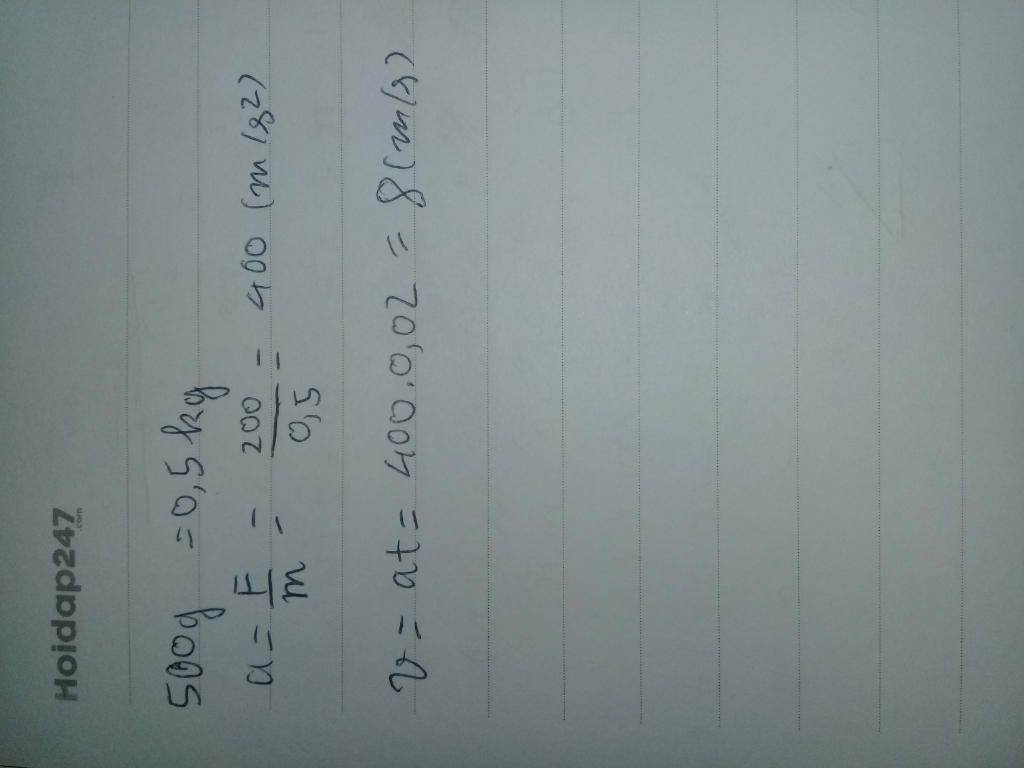 Hoidap247
.com
500g = 0,5 kg
a = F/m = 200/0,5 = 400 (m/s2)
v = at = 400.0,02 = 8 (m/s)